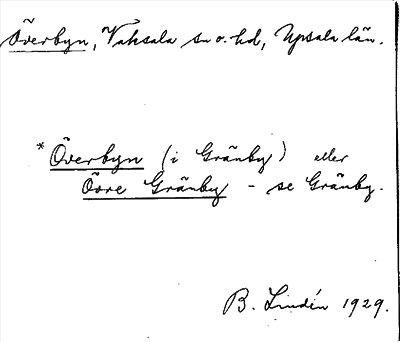 Överbyn, Vaksala sn o. hd, Upsala län.
* Överbyn (i Gränby) eller
Övre Gränby - se Gränby.
B. Lindén 1929.